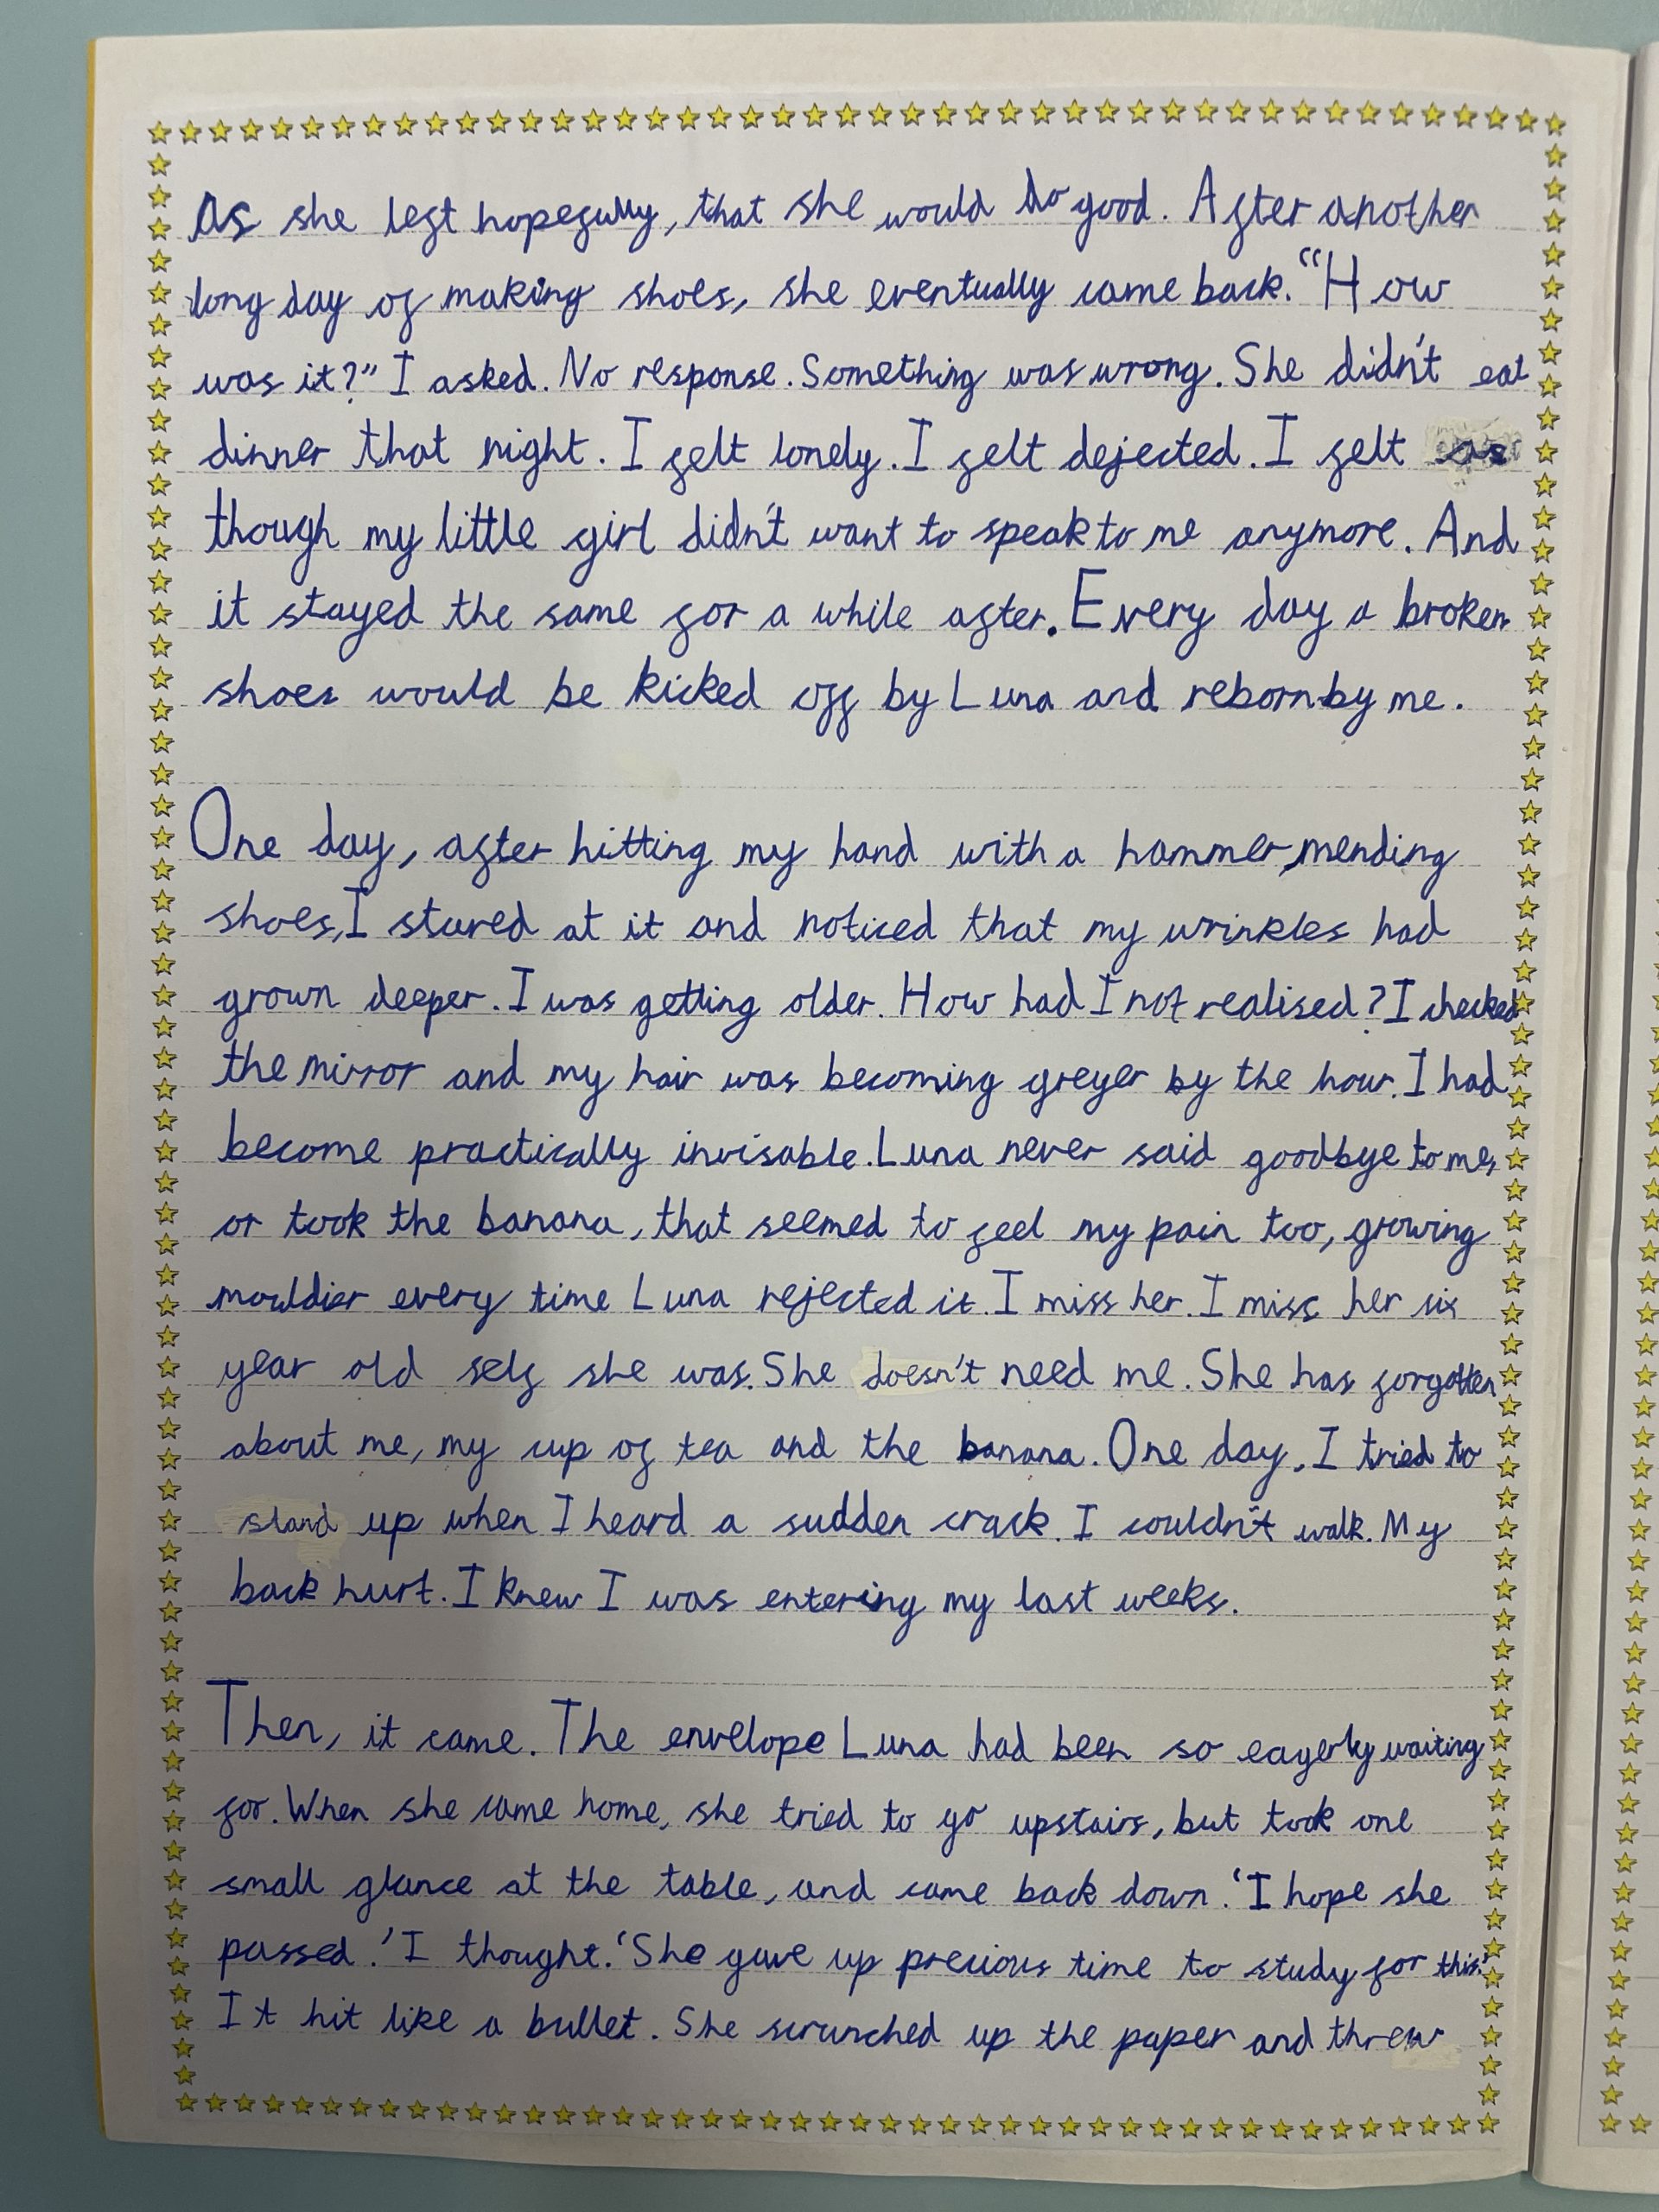 As she left hopefully, that she would do good. After another
long day of making shoes, she eventually came back. "How
was it?" I asked. No response. Something was wrong. She didn't eat
dinner that night. I felt lonely. I felt dejected. I felt as
though my little girl didn't want to speak to me anymore. And
it stayed the same for a while after. Every day a broken
shoes would be kicked off by Luna and reborn by me.
One day, after hitting my hand with a hammer, mending
shoes, I stared at it and noticed that my wrinkles had
grown deeper. I was getting older. How had I not realised? I checked
the mirror and my hair was becoming greyer by the hour. I had
become practically invisable. Luna never said goodbye to me,
or took the banana, that seemed to feel my pain too, growing
mouldier every time Luna rejected it. I miss her. I miss her six
year old self she was. She doesn't need me. She has forgotten
about me, my cup of tea and the banana. One day, I tried to
stand up when I heard a sudden crack. I couldn't walk. My
back hurt. I knew I was entering my last weeks.
Then, it came. The envelope Luna had been so eagerly waiting
for. When she came home, she tried to go upstairs, but took one
small glance at the table, and came back down. 'I hope she
passed.' I thought. 'She gave up precious time to study for this.'
It hit like a bullet. She scrunched up the paper and threw